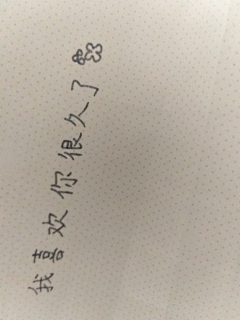 我喜欢你很久了